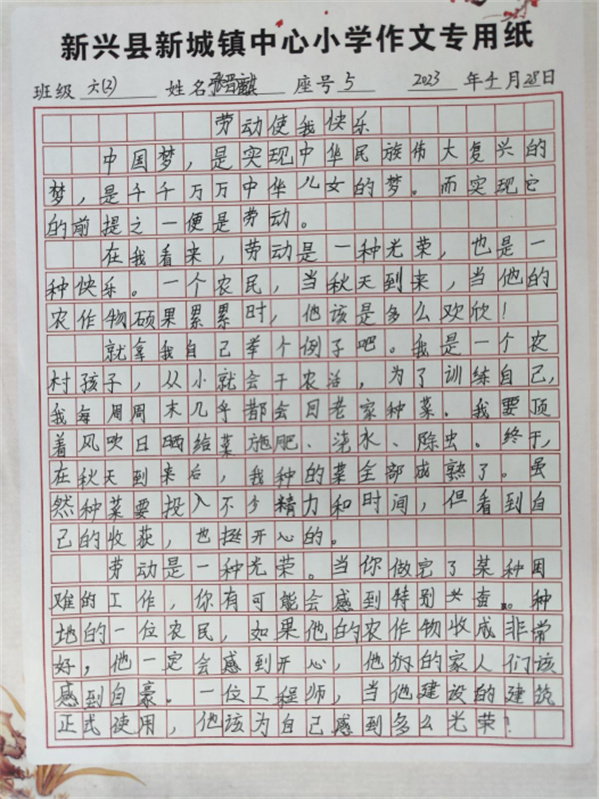 新兴县新城镇中心小学作文专用纸
班级 六(2) 姓名 座号 5 2023 年 4 月 28 日
劳动使我快乐
中国梦，是实现中华民族伟大复兴的
梦，是千千万万中华儿女的梦。而实现它
的前提之一便是劳动。
在我看来，劳动是一种光荣，也是一
种快乐。一个农民，当秋天到来，当他的
农作物硕果累累时，他该是多么欢欣！
就拿我自己举个例子吧。我是一个农
村孩子，从小就会干农活，为了训练自己，
我每周周末几乎都会回老家种菜。我要顶
着风吹日晒给菜施肥、浇水、除虫。终于，
在秋天到来后，我种的菜全部成熟了。虽
然种菜要投入不少精力和时间，但看到自
己的收获，也挺开心的。
劳动是一种光荣。当你做完了某种困
难的工作，你有可能会感到特别兴奋。种
地的一位农民，如果他的农作物收成非常
好，他一定会感到开心，他的家人们该
感到自豪。一位工程师，当他建设的建筑
正式使用，他该为自己感到多么光荣？